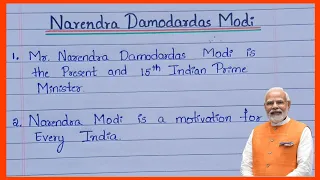 Narendra Damodardas Modi
1. Mr. Narendra Damodardas Modi is
the Present and 15th Indian Prime
Minister
2. Narendra Modi is a motivation for
Every India.